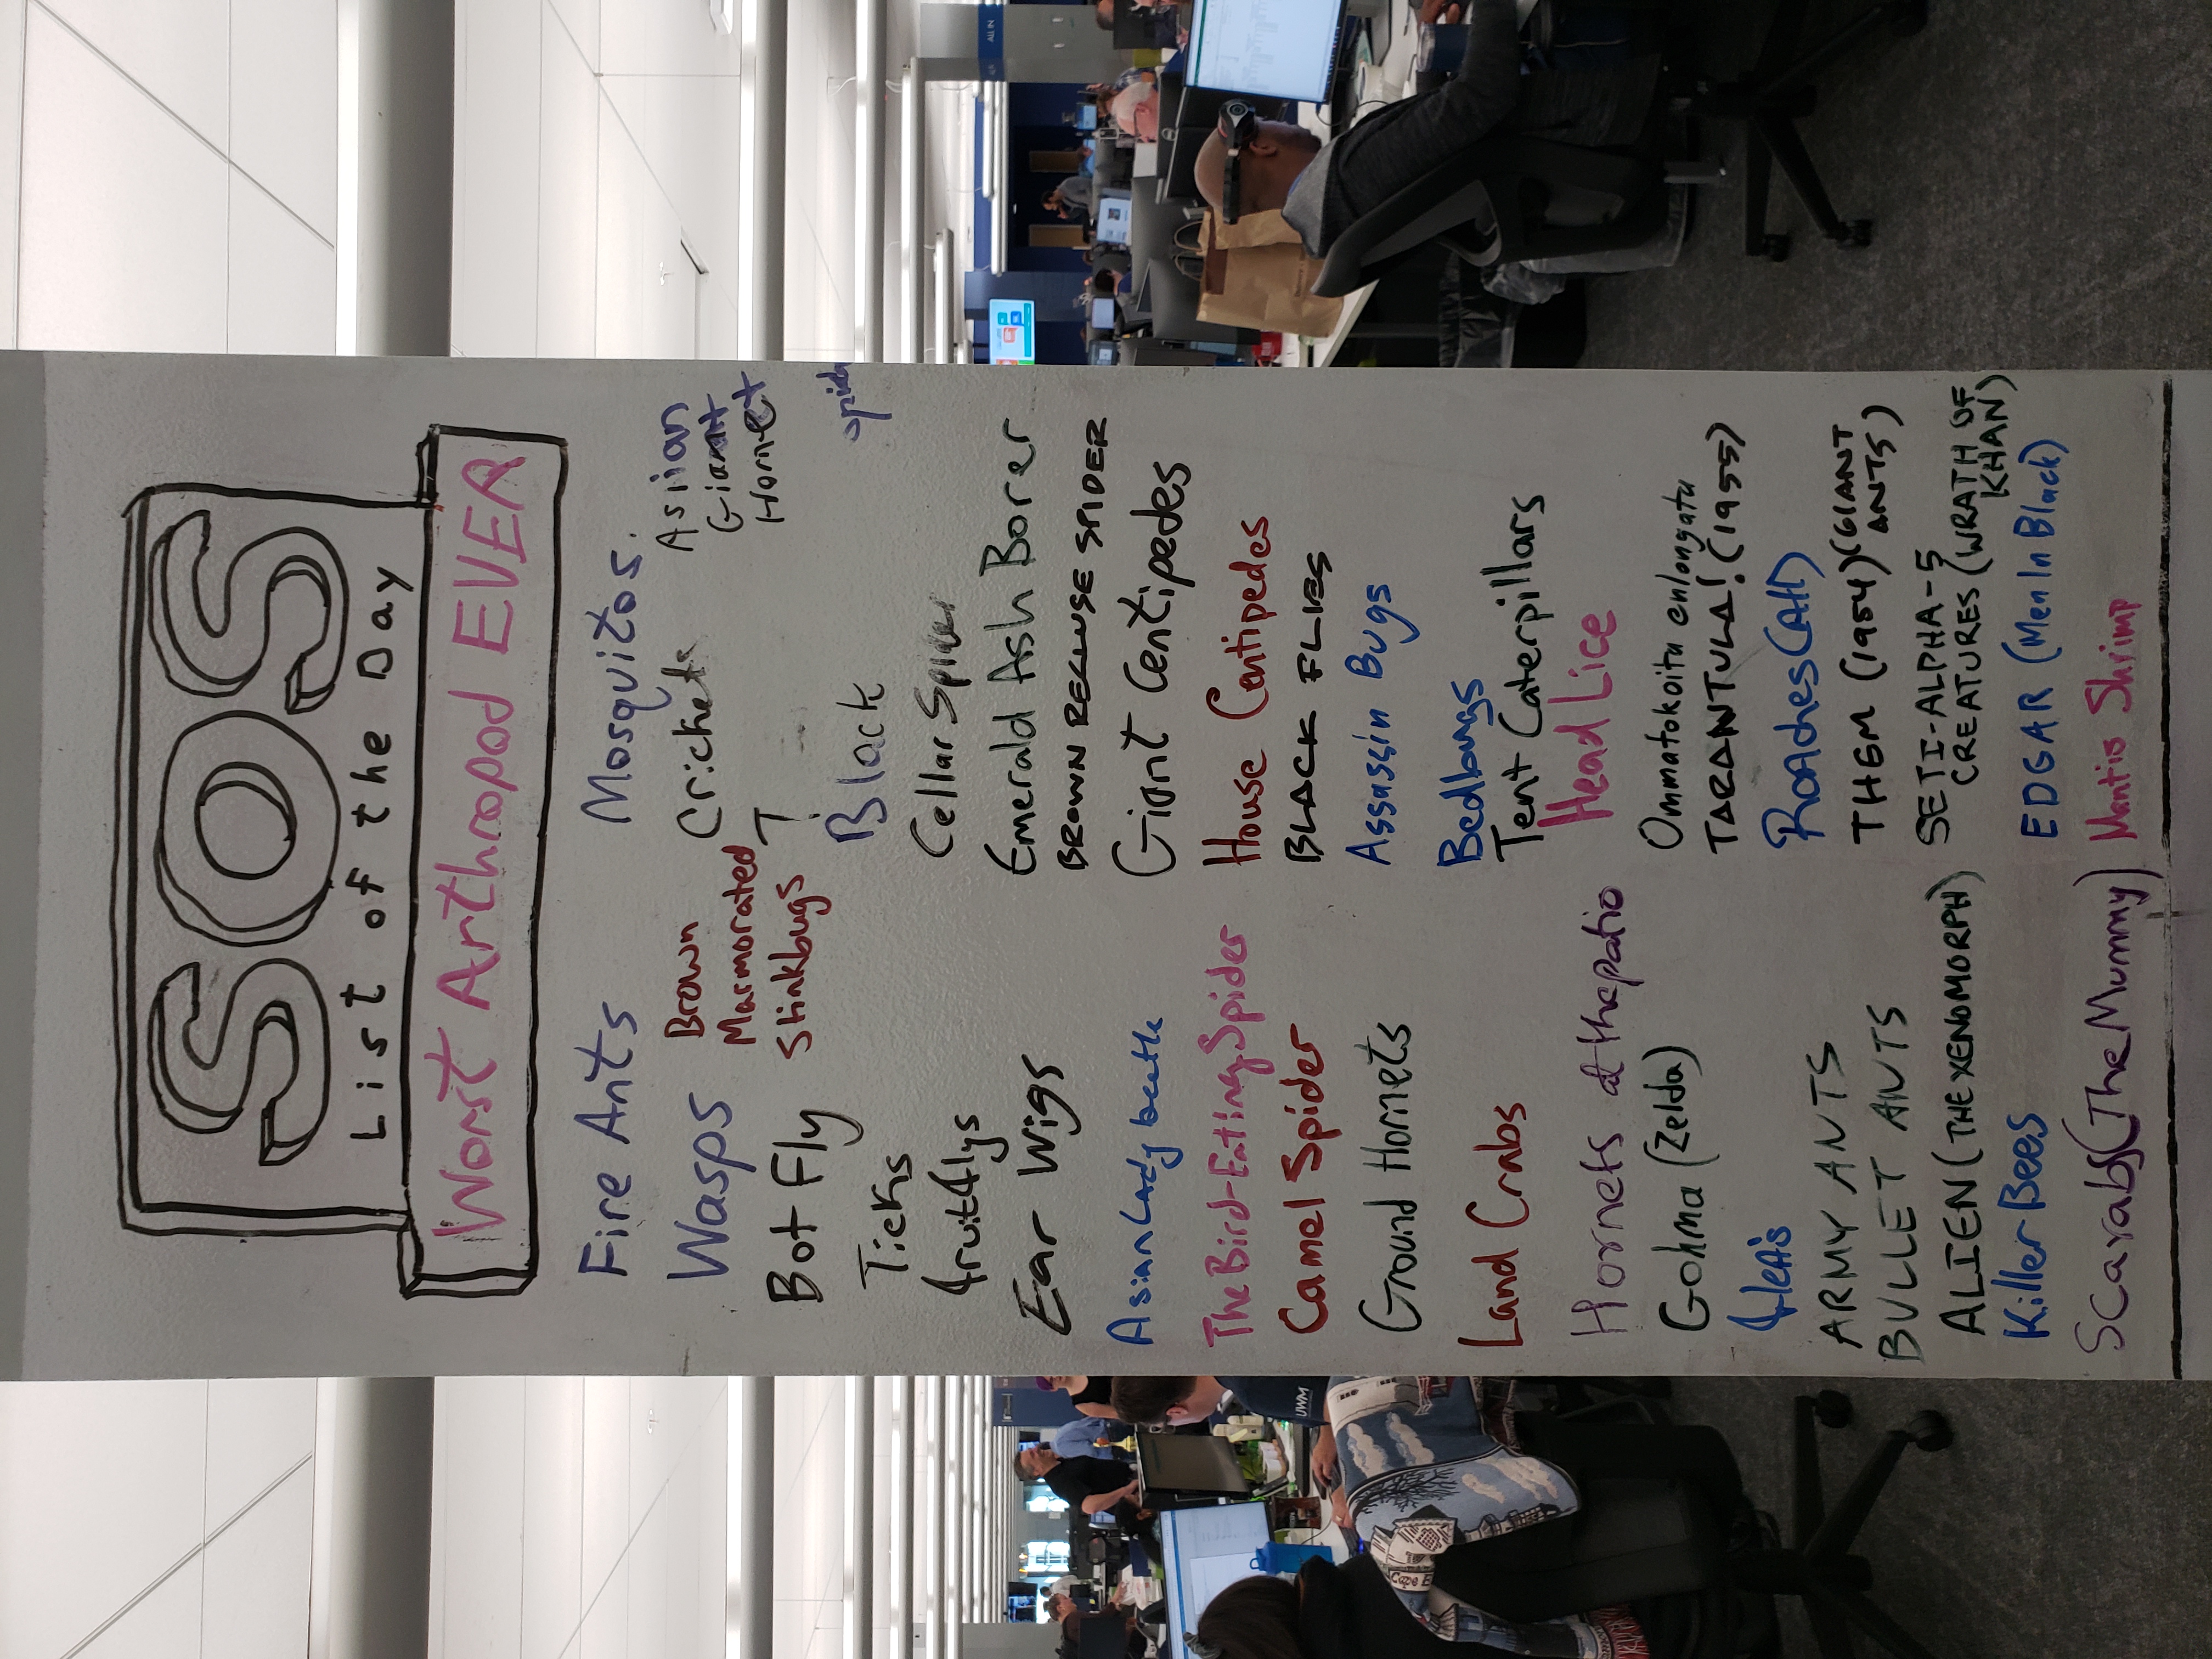 SOS
List of the Day
Worst Arthropod EVER
Fire Ants
Wasps
Brown
Marmorated
Stinkbugs
Bot Fly
Ticks
fruitflys
Ear Wigs
Asian Lady beetle
The Bird-Eating Spider
Camel Spider
Ground Hornets
Land Crabs
Hornets at the patio
Gohma (Zelda)
fleas
ARMY ANTS
BULLET ANTS
ALIEN (THE XENOMORPH)
Killer Bees
Scarabs (The Mummy)
Mosquitos.
Crickets
Asiian
Giant
Hornet
T
Black
Cellar Spider
Emerald Ash Borer
BROWN RECLUSE SPIDER
Giant Centipedes
House Centipedes
BLACK FLIES
Assassin Bugs
Bedbugs
Tent Caterpillars
Head Lice
Ommatokoita enlongata
TARANTULA! (1955)
Roaches (All)
THEM (1954) (GIANT
ANTS)
SETI-ALPHA-5
CREATURES (WRATH OF
KHAN)
EDGAR (Men In Black)
Mantis Shrimp
UWM
ALL IN